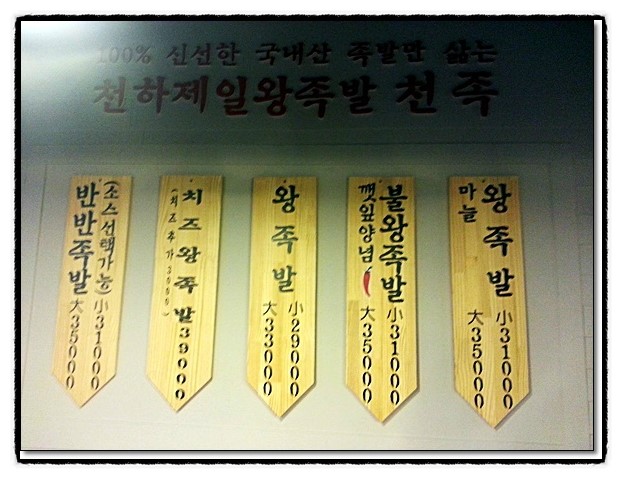 100% 신선한 국내산 족발만 삶는
천하제일왕족발 천족
반반족발
(소스선택가능)
小31000
大35000
치즈왕족발39000
(치즈추가3000)
왕족발
小29000
大33000
불왕족발
깻잎양념
小31000
大35000
왕족발
마늘
小31000
大35000